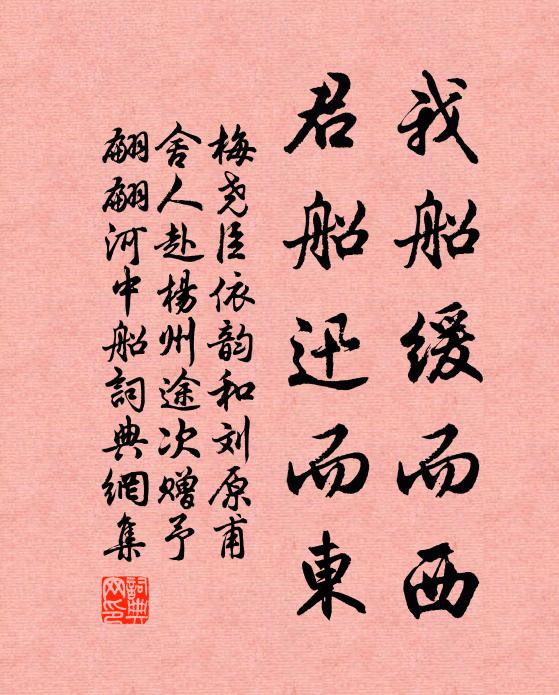 我船缓而西
君船迅而東
梅尧臣依韵和刘原甫
舍人赴楊州途次赠予
翩翩河中船詞典網集
詞典网印